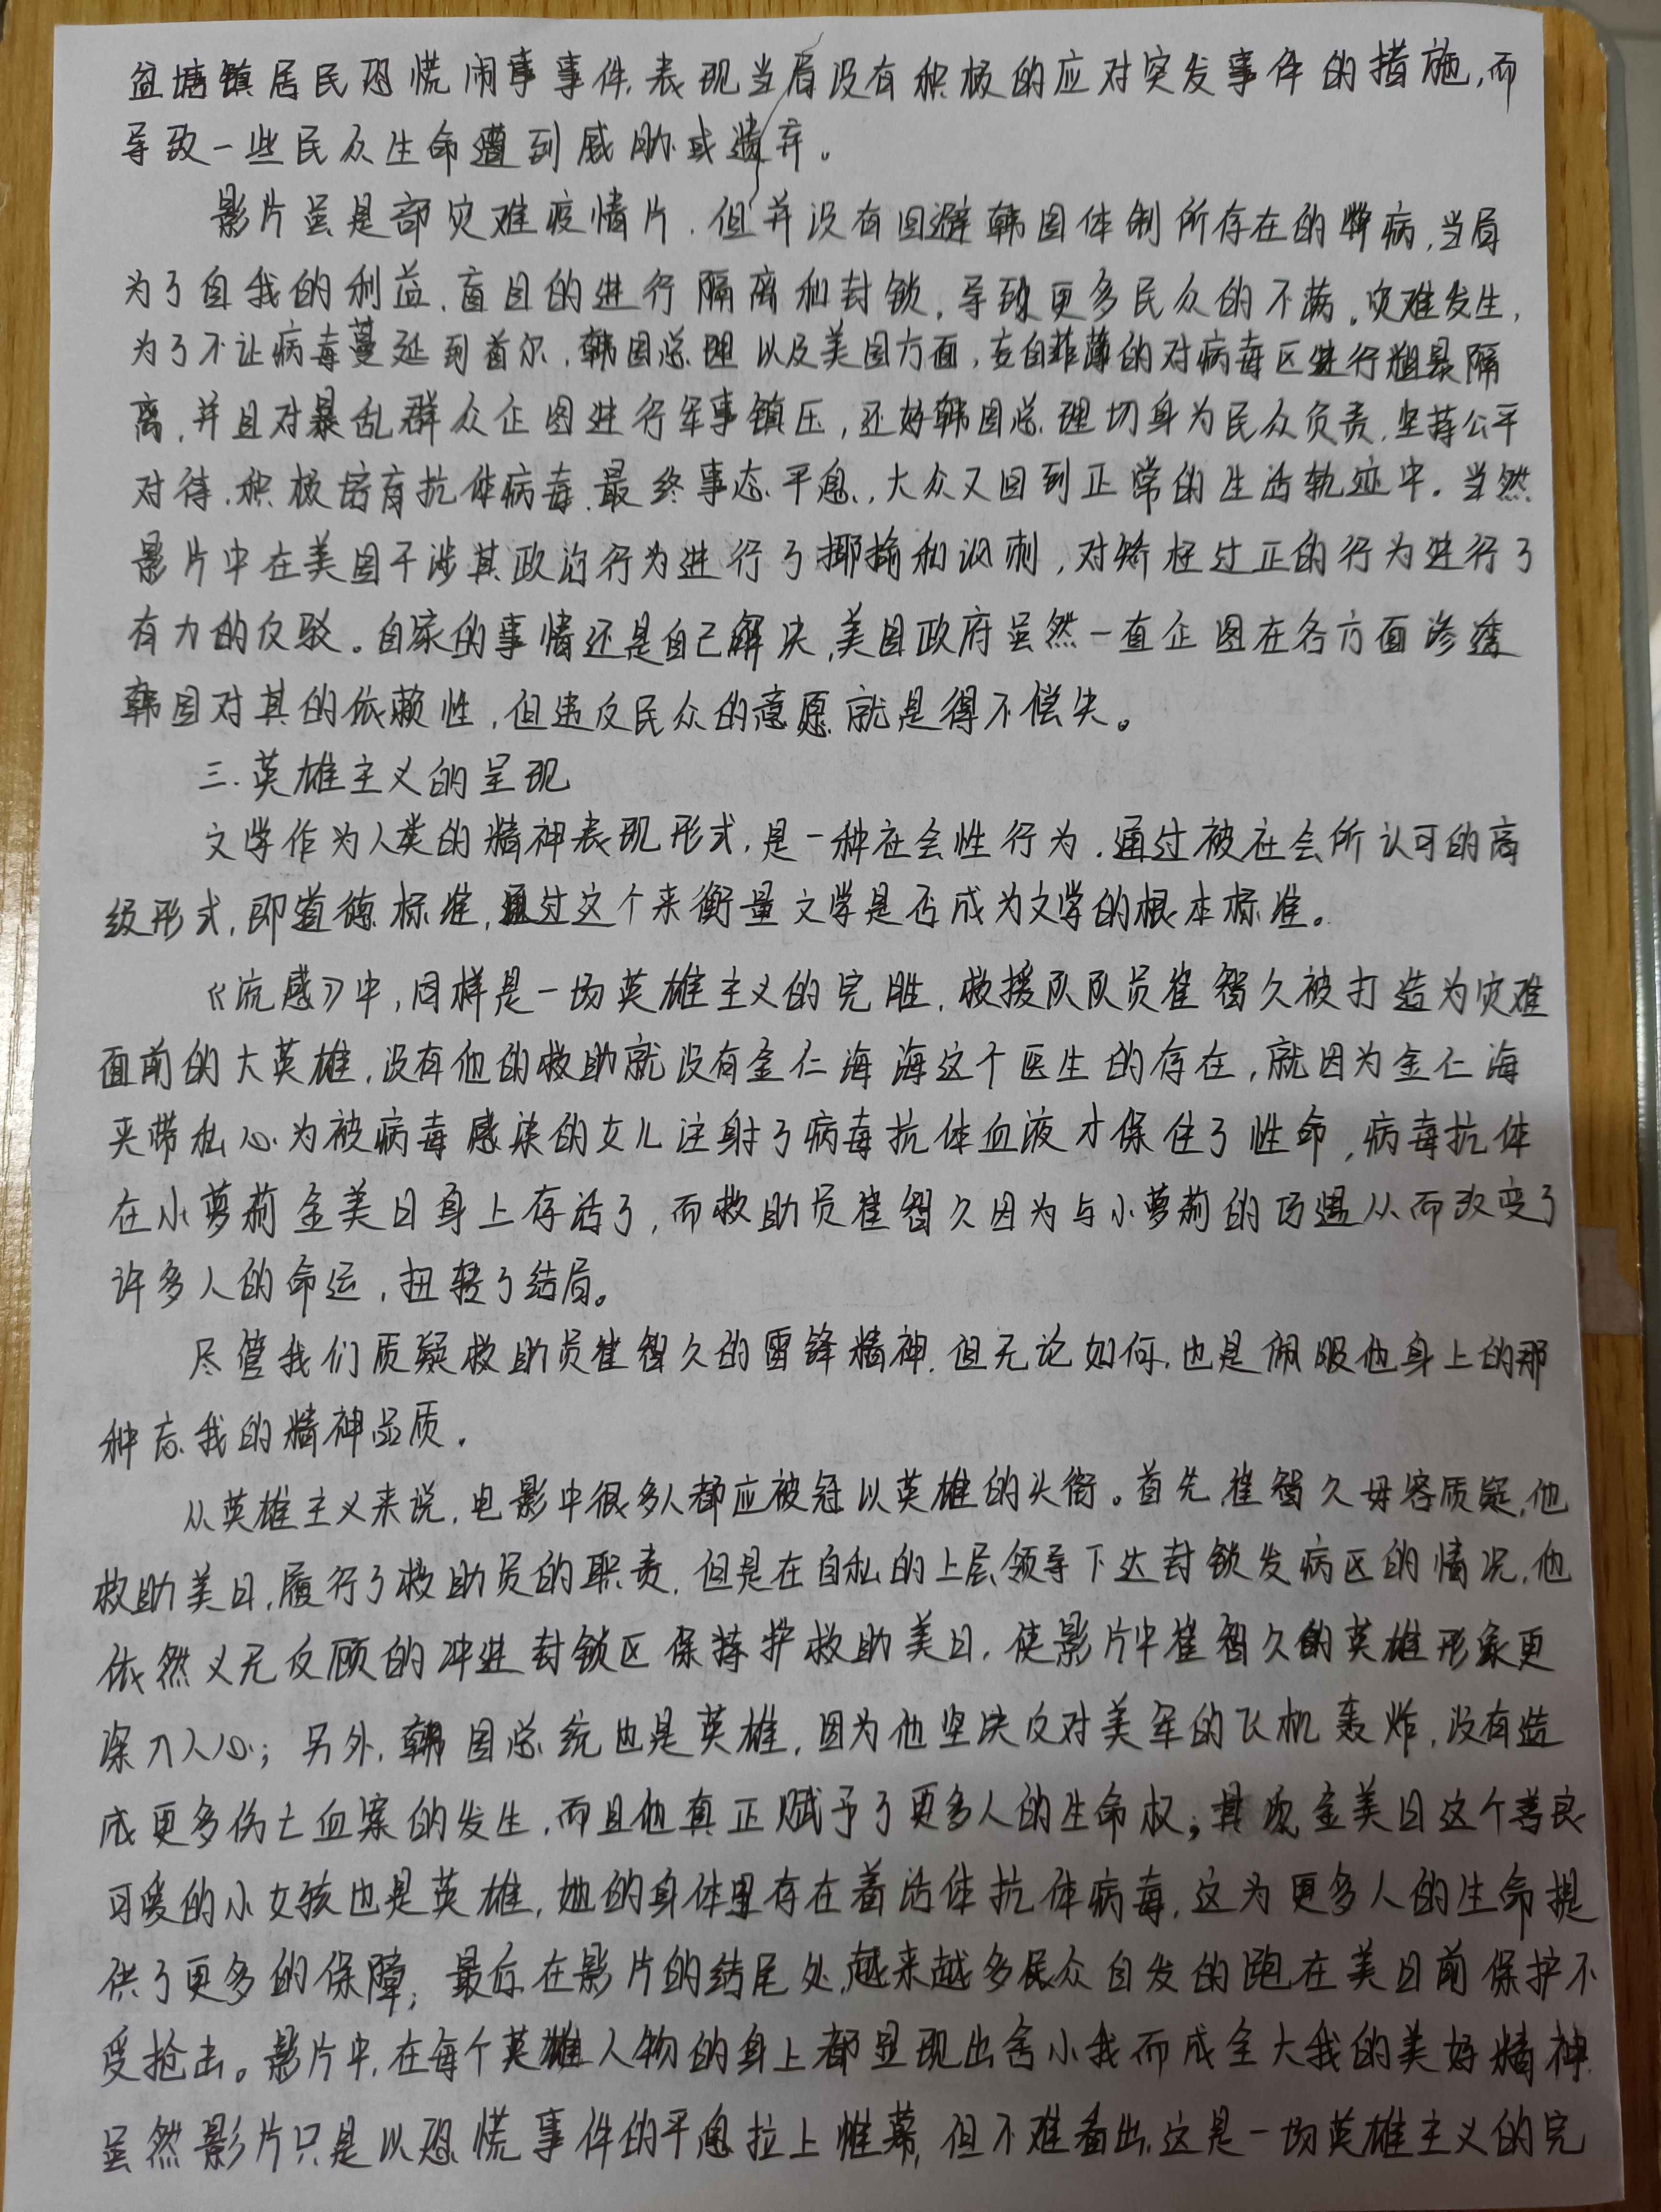 盆塘镇居民恐慌闹事事件,表现当局没有积极的应对突发事件的措施,而
导致一些民众生命遭到威胁或遗弃。
影片虽是部灾难疫情片,但并没有回避韩国体制所存在的弊病,当局
为了自我的利益,盲目的进行隔离和封锁,导致更多民众的不满。灾难发生,
为了不让病毒蔓延到首尔,韩国总理以及美国方面,妄自菲薄的对病毒区进行粗暴隔
离,并且对暴乱群众企图进行军事镇压,还好韩国总理切身为民众负责,坚持公平
对待,积极培育抗体病毒,最终事态平息,大众又回到正常的生活轨迹中。当然
影片中在美国干涉其政治行为进行了揶揄和讽刺,对矫枉过正的行为进行了
有力的反驳。自家的事情还是自己解决,美国政府虽然一直企图在各方面渗透
韩国对其的依赖性,但违反民众的意愿就是得不偿失。
三.英雄主义的呈现
文学作为人类的精神表现形式,是一种社会性行为,通过被社会所认可的高
级形式,即道德标准,通过这个来衡量文学是否成为文学的根本标准。
《流感》中,同样是一场英雄主义的完胜,救援队队员崔智久被打造为灾难
面前的大英雄,没有他的救助就没有金仁海海这个医生的存在,就因为金仁海
夹带私心为被病毒感染的女儿注射了病毒抗体血液才保住了性命,病毒抗体
在小萝莉金美日身上存活了,而救助员崔智久因为与小萝莉的巧遇从而改变了
许多人的命运,扭转了结局。
尽管我们质疑救助员崔智久的雷锋精神,但无论如何,也是佩服他身上的那
种忘我的精神品质。
从英雄主义来说,电影中很多人都应被冠以英雄的头衔。首先,崔智久毋容质疑,他
救助美日,履行了救助员的职责,但是在自私的上层领导下达封锁发病区的情况,他
依然义无反顾的冲进封锁区保持护救助美日,使影片中崔智久的英雄形象更
深入人心;另外,韩国总统也是英雄,因为他坚决反对美军的飞机轰炸,没有造
成更多伤亡血案的发生,而且他真正赋予了更多人的生命权;其次,金美日这个善良
可爱的小女孩也是英雄,她的身体里存在着活体抗体病毒,这为更多人的生命提
供了更多的保障;最后,在影片的结尾处,越来越多民众自发的跑在美日前保护不
受抢击。影片中,在每个英雄人物的身上都显现出舍小我而成全大我的美好精神.
虽然影片只是以恐慌事件的平息拉上帷幕,但不难看出,这是一场英雄主义的完